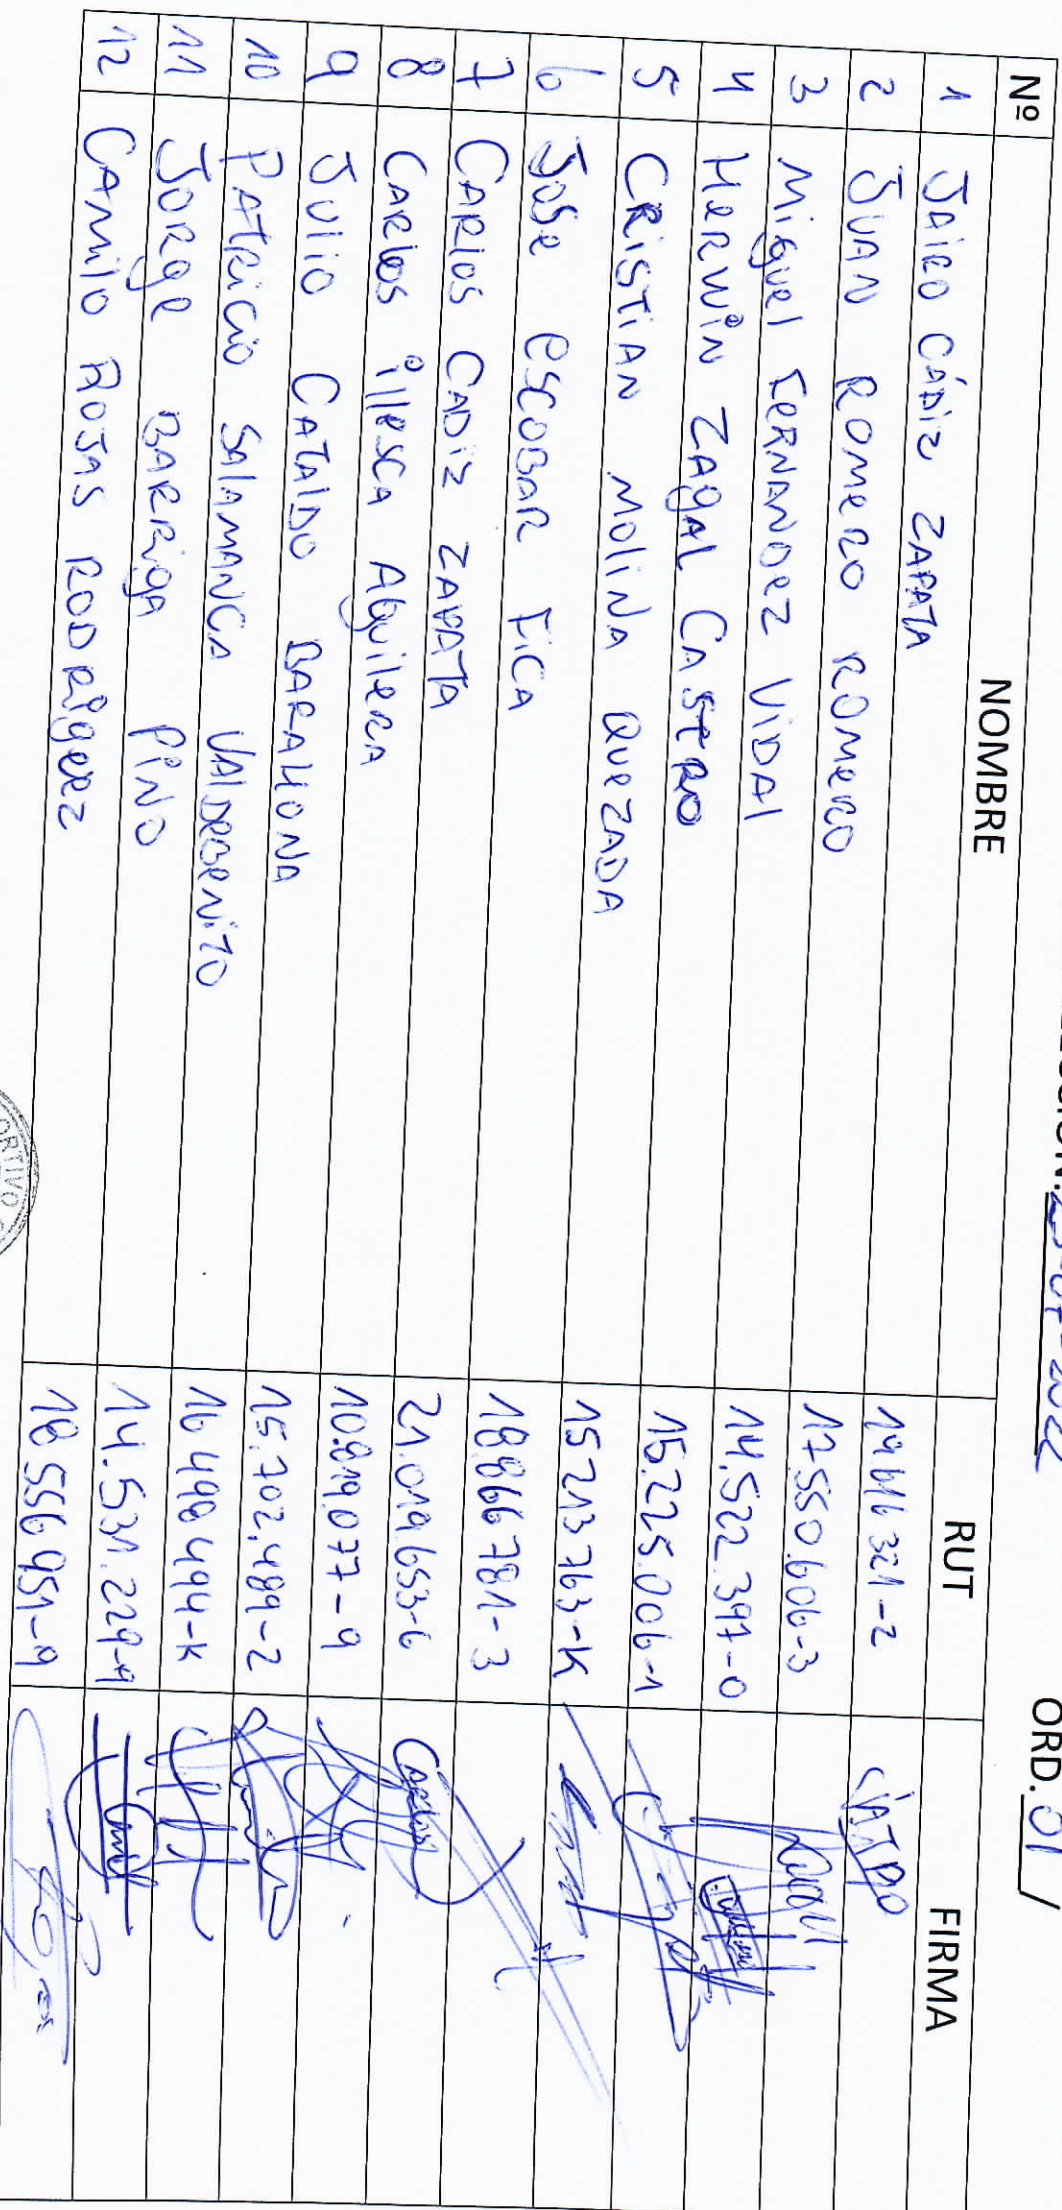 ORD. 01 /
Nº NOMBRE RUT FIRMA
1 JAIRO CÁDIZ ZAPATA 19 616 321-2 JAIRO
2 JUAN ROMERO ROMERO 17.550.606-3
3 Miguel FERNANDEZ VIDAL 14.522.397-0
4 HERWIN ZAGAL CASTRO 15.225.006-1
5 CRISTIAN MOLINA QUEZADA 15 213 763-K
6 JOSE ESCOBAR FICA 18.866 781-3
7 CARLOS CADIZ ZAPATA 21.019.653-6
8 CARLOS illESCA AguilERA 10.819.077-9 Carlos
9 JULIO CATALDO BARAHONA 15.702.489-2
10 PATRICIO SALAMANCA VALDEBENITO 16 498 494-K
11 JORGE BARRIGA PINO 14.531.229-9
12 CAMILO ROJAS RODRIGUEZ 18 556 951-9
ORTIVO